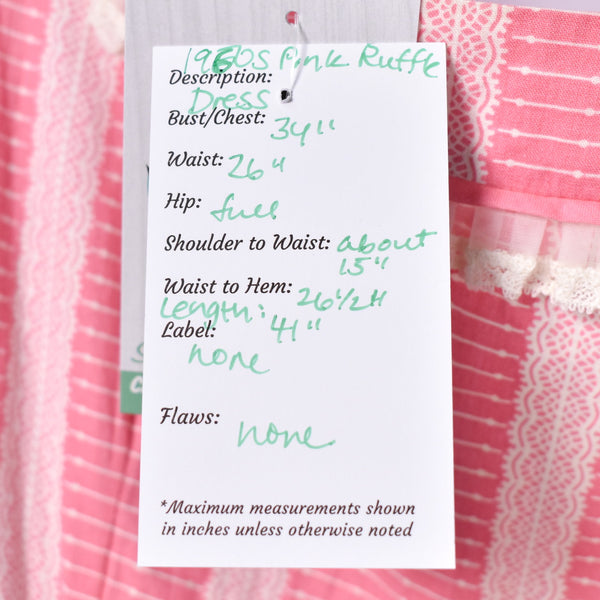 1960s Pink Ruffle
Description:
Dress
Bust/Chest: 34"
Waist: 26"
Hip: full
Shoulder to Waist: about
15"
Waist to Hem: 26 1/2"
Length: 41"
Label:
none
Flaws: none
*Maximum measurements shown
in inches unless otherwise noted